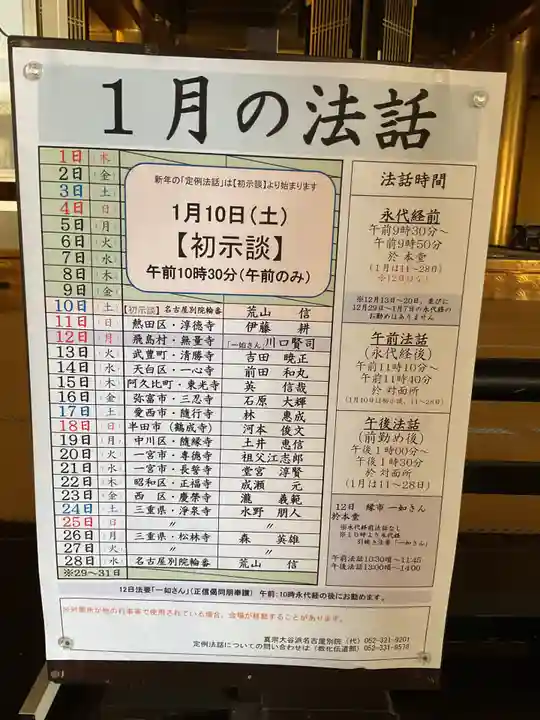 1月の法話
1日 木
2日 金
3日 土
4日 日
5日 月
6日 火
7日 水
8日 木
9日 金
新年の「定例法話」は【初示談】より始まります
1月10日(土)
【初示談】
午前10時30分(午前のみ)
10日 土 【初示談】名古屋別院輪番 荒山 信
11日 日 熱田区・淳徳寺 伊藤 耕
12日 月 飛島村・無量寺 「一如さん」川口賢司
13日 火 武豊町・清勝寺 吉田 暁正
14日 水 天白区・一心寺 前田 和丸
15日 木 阿久比町・東光寺 英 信哉
16日 金 弥富市・三忍寺 石原 大輝
17日 土 愛西市・随行寺 林 恵成
18日 日 半田市(鶴成寺) 河本 俊文
19日 月 中川区・随縁寺 土井 恵信
20日 火 一宮市・専徳寺 祖父江志郎
21日 水 一宮市・長誓寺 堂宮 淳賢
22日 木 昭和区・正福寺 成瀬 元
23日 金 西 区・慶榮寺 瀧 義範
24日 土 三重県・浄泉寺 水野 朋人
25日 日 〃 〃
26日 月 三重県・松林寺 森 英雄
27日 火 〃 〃
28日 水 名古屋別院輪番 荒山 信
※29~31日
法話時間
永代経前
午前9時30分~
午前9時50分
於 本堂
(1月は11~28日)
※12日なし
※12月13日~20日、並びに
12月29日~1月7日の永代経の
お勤めはありません
午前法話
(永代経後)
午前11時10分~
午前11時40分
於 対面所
(1月10日は初示談、11~28日)
午後法話
(前勤め後)
午後1時00分~
午後1時30分
於 対面所
(1月は11~28日)
12日 縁市 一如さん
於本堂
※永代経前法話なし
※10時より永代経
引続き法要「一如さん」
午前法話10:30頃~11:45
午後法話13:00頃~14:00
12日法要「一如さん」(正信偈同朋奉讃) 午前:10時永代経の後にお勤めます。
※対面所が他の行事等で使用されている場合、会場が移動することがあります。
真宗大谷派名古屋別院(代) 052-331-9201
定例法話についての問い合わせは(教化伝道部) 052-331-9578